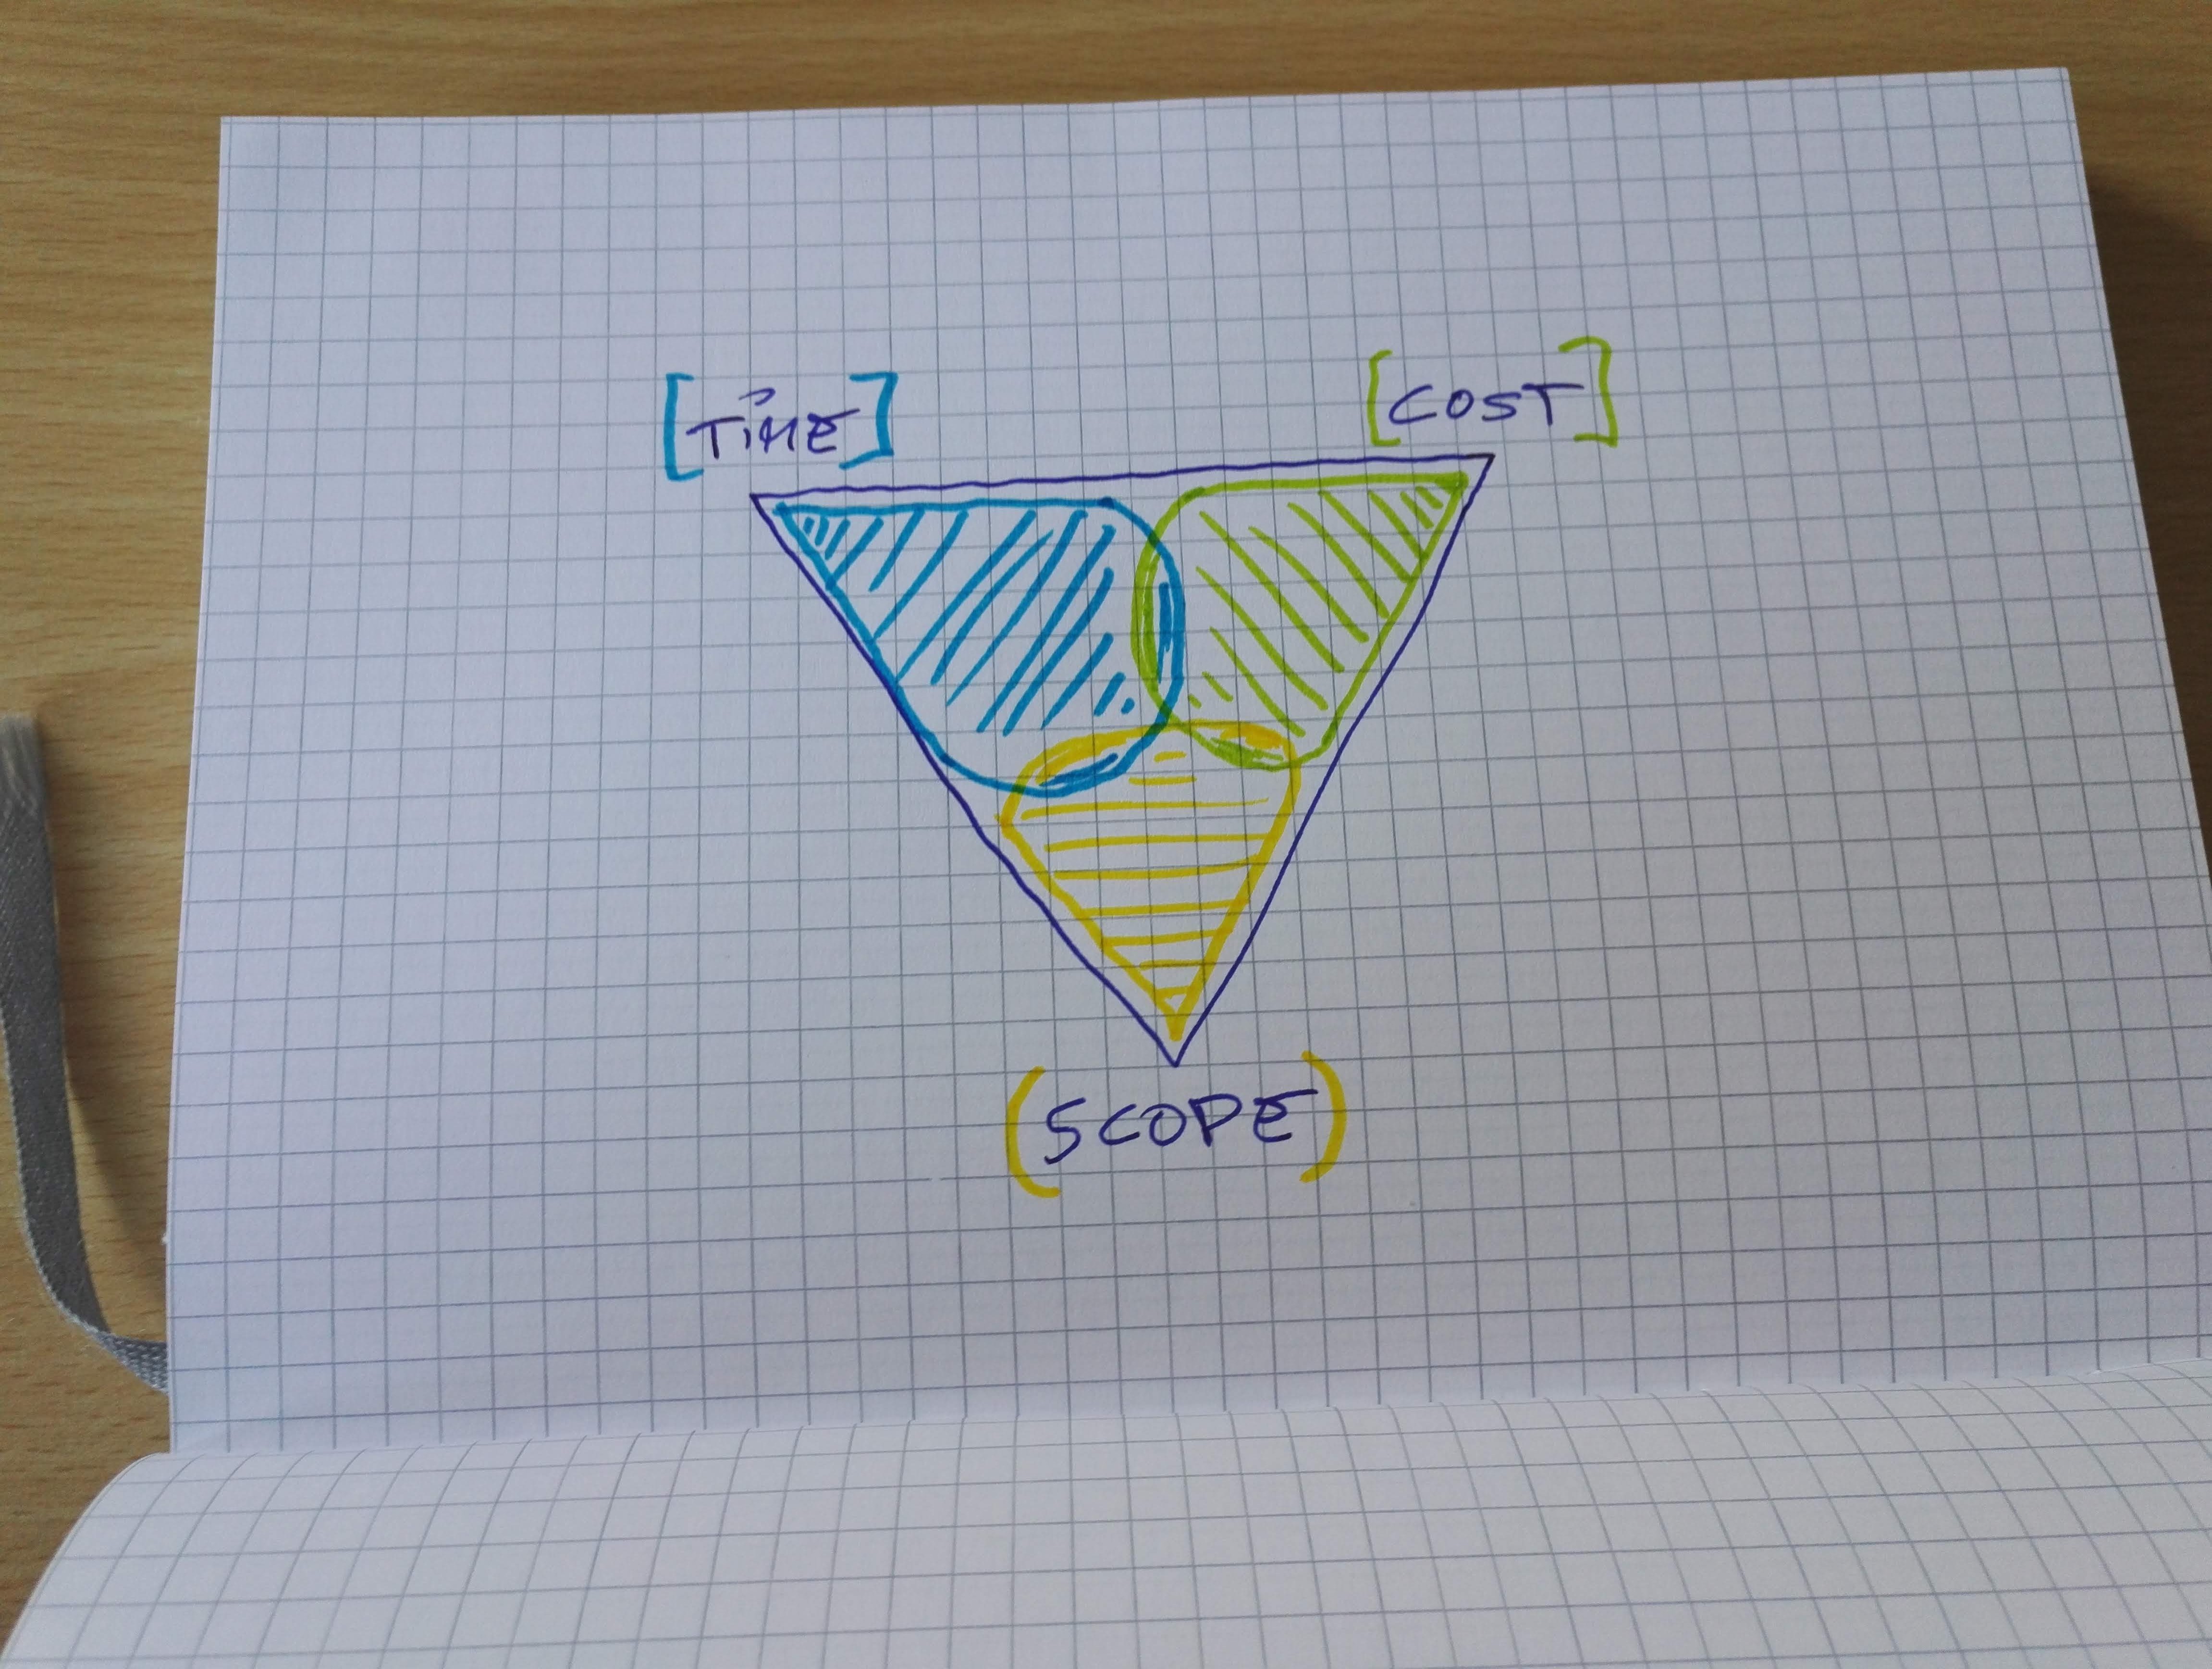 [TiME]
[COST]
(SCOPE)